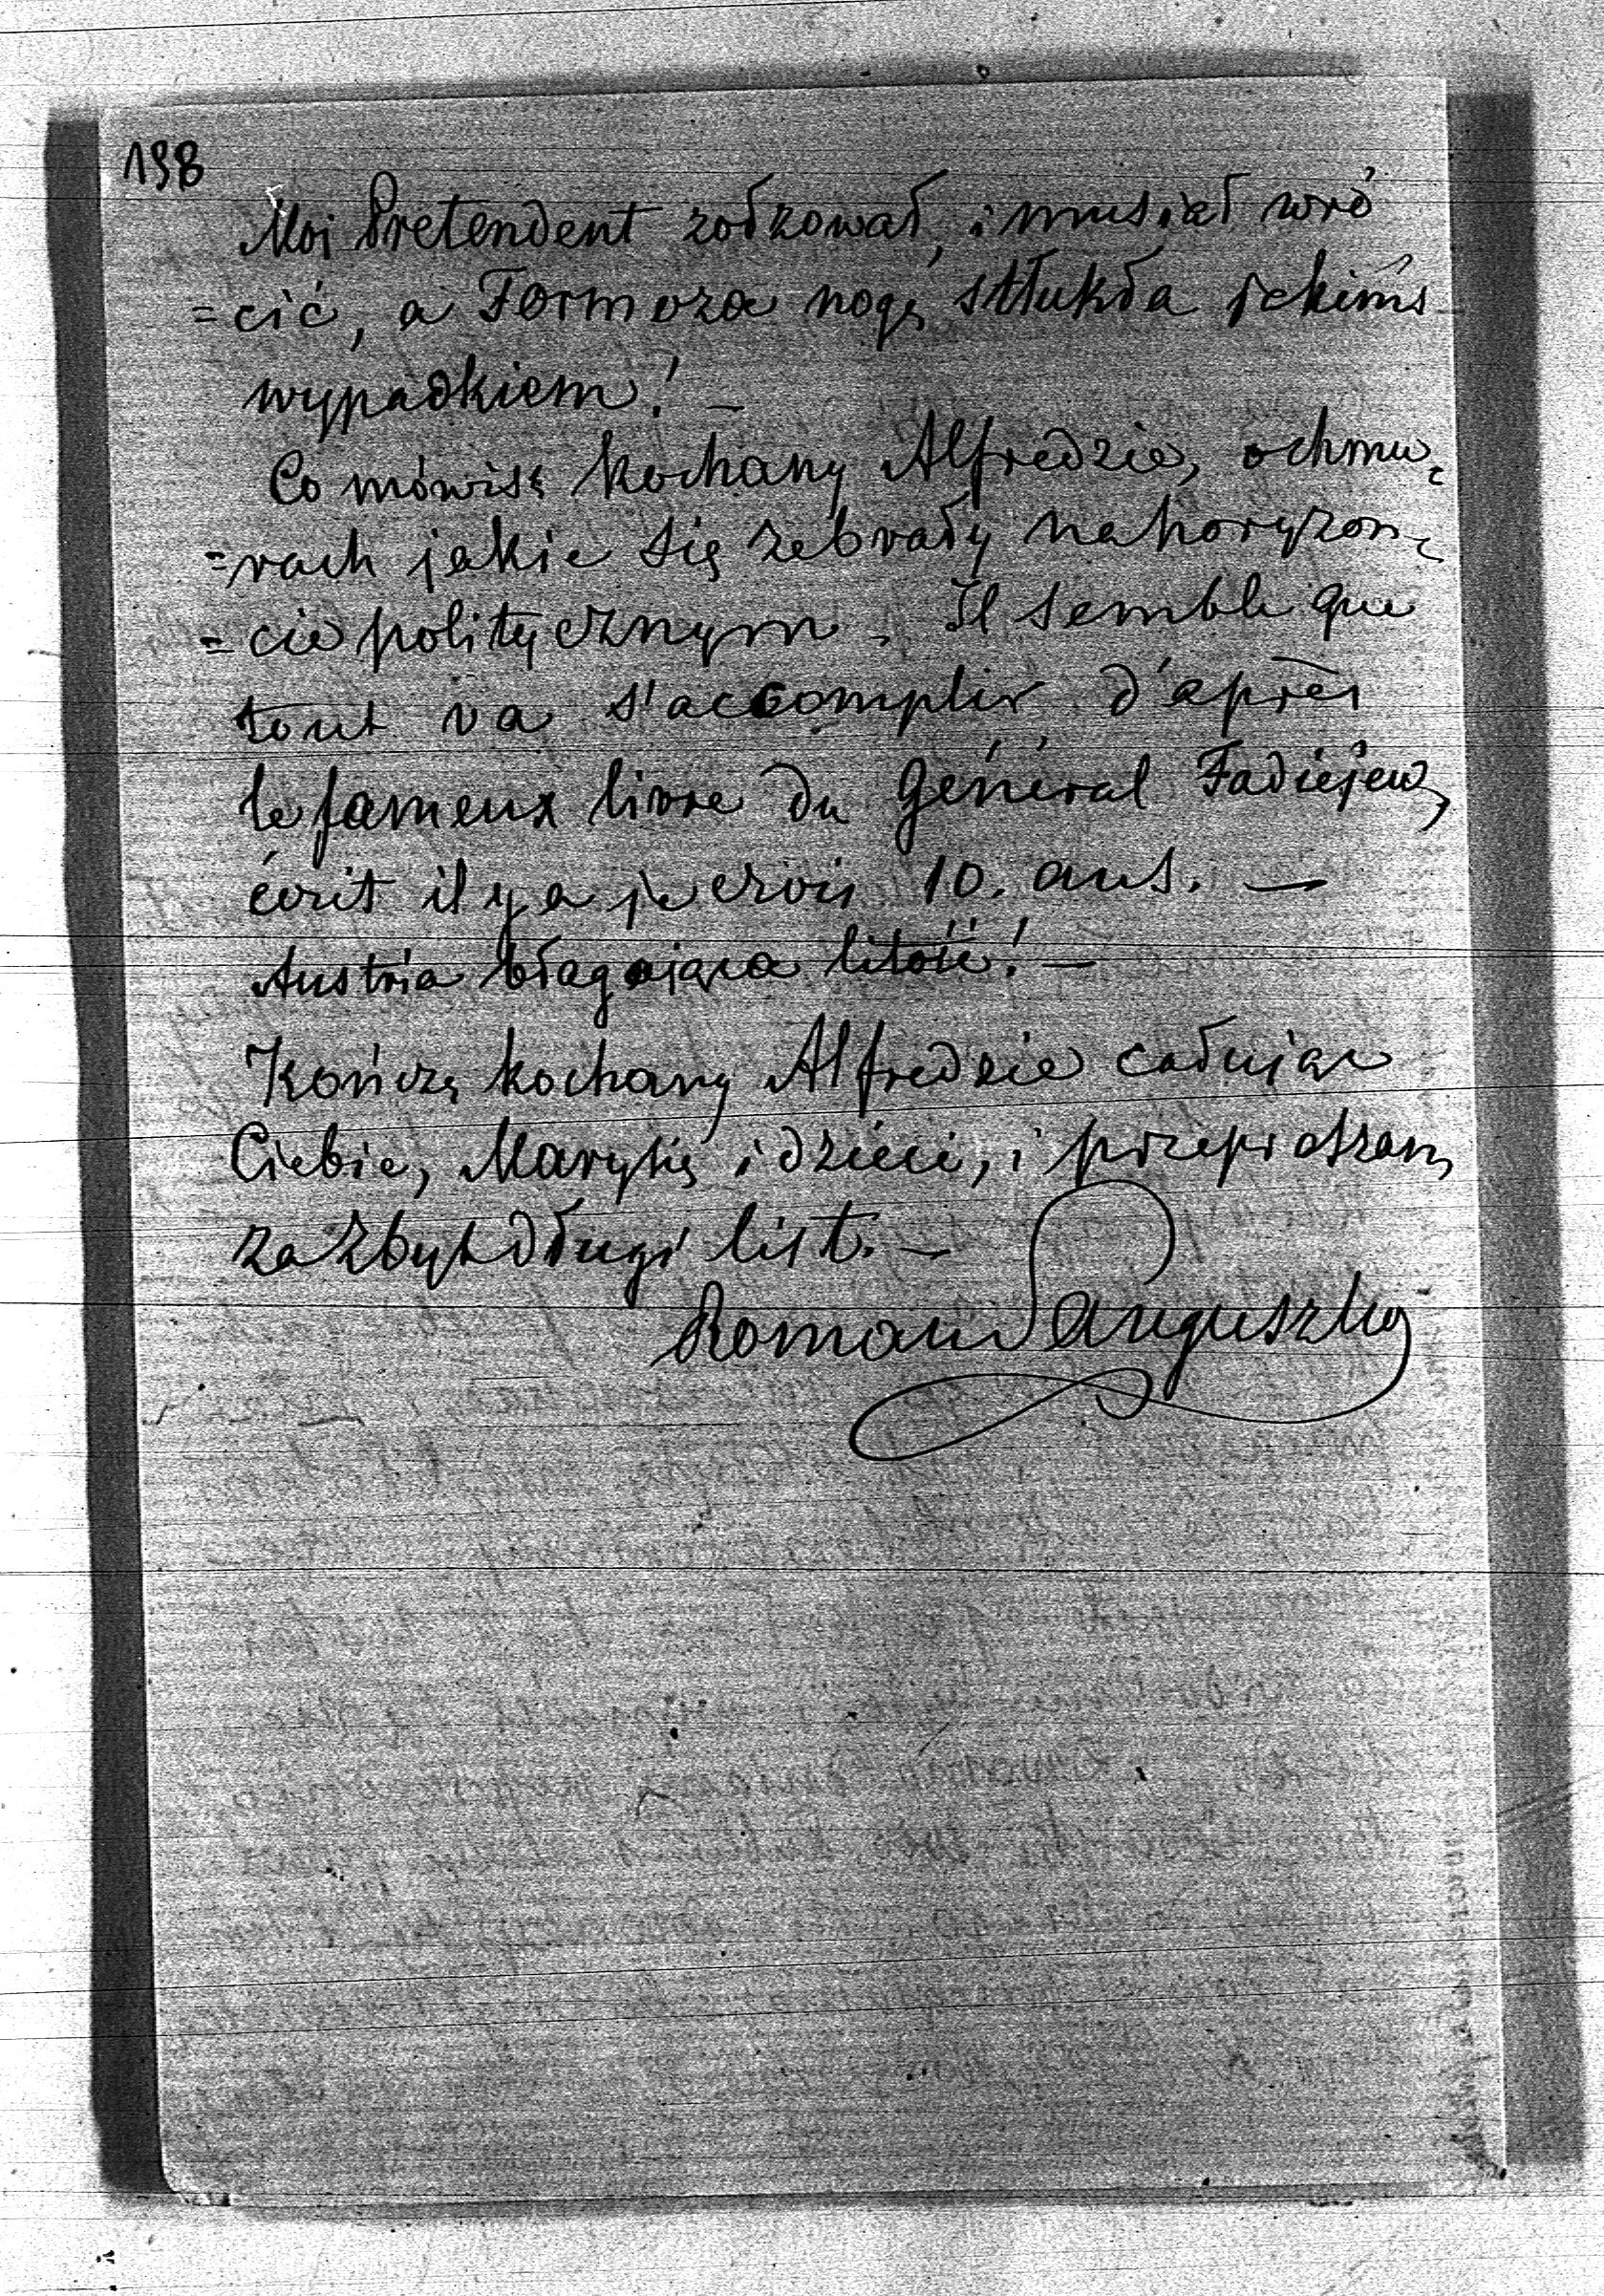 198
Moi Pretendent zołzował, i musiał wró
=cić, a Formoza nogę stłukła jekimś
wypadkiem! –
Co mówisz kochany Alfredzie, o chmu=
=rach jakie się zebrały na horyzon=
=cie politycznym. Il semble que
tout va s'accomplir d'après
le fameux livre du Général Fadiejew,
écrit il y a je crois 10. ans. —
Austria błagająca litość! —
Kończę kochany Alfredzie całując
Ciebie, Marysię i dzieci, i przepraszam
za zbyt długi list. —
Roman Sanguszko